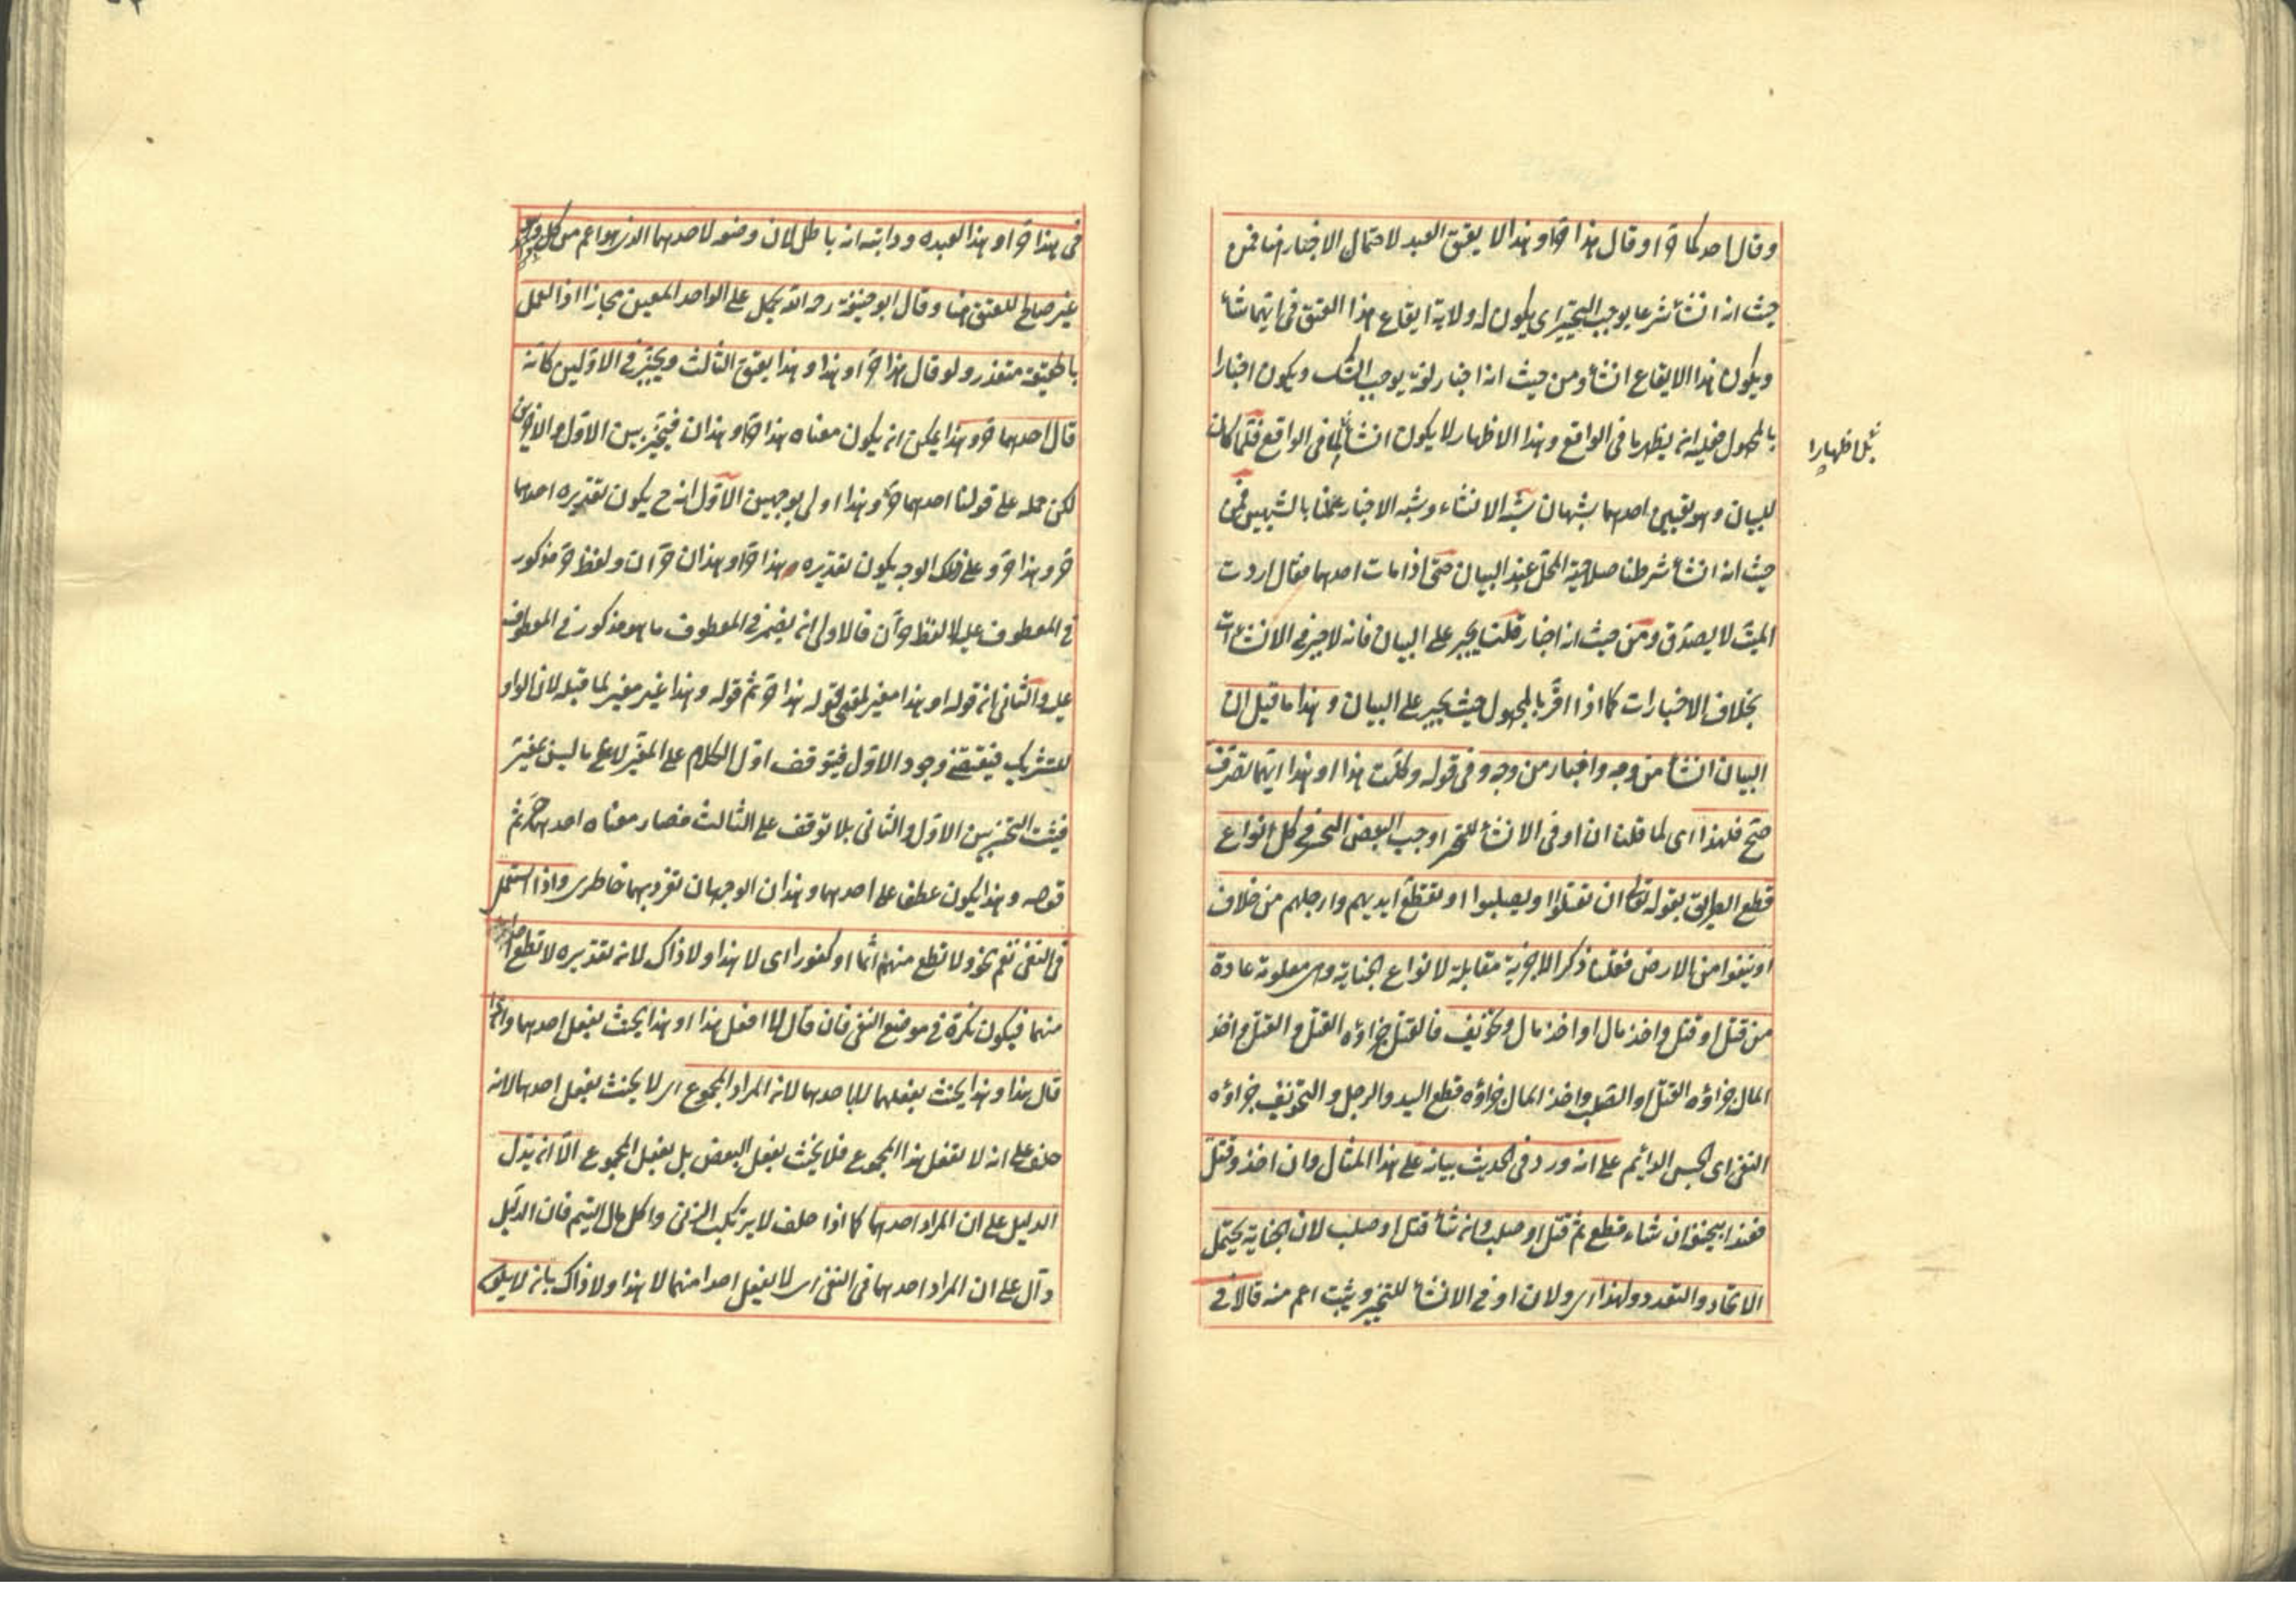 وقال احدكما حر او قال هذا حر او هذا لا يعتق العبد لاحتمال الاخبار هنا فمن
حيث انه انشأ شرعا يوجب التخيير اى يكون له ولاية ايقاع هذا العتق فى ايهما شأ
ويكون هذا الايقاع انشأ ومن حيث انه اخبار لغة يوجب الشك ويكون اخبارا
بالمجهول فعليه ان يظهر ما فى الواقع وهذا الاظهار لا يكون انشأ بل فى الواقع فلما كان
بل اظهارا
للبيان وهو تعيين احدهما شبهان شبه الانشاء وشبه الاخبار عملنا بالشبهين فمن
حيث انه انشأ شرطنا صلاحية المحل عند البيان حتى اذا مات احدهما فقال اردت
الميت لا يصدق ومن حيث انه اخبار قلنا يجبر على البيان فانه لا جبر فى الانشاآت
بخلاف الاخبارات كما اذا اقر بالمجهول حيث يجبر على البيان وهذا ما قيل ان
البيان انشأ من وجه واخبار من وجه وفى قوله وكلت هذا او هذا ايهما تصرف
صح فلهذا اى لما قلنا ان او فى الانشأ للتخيير اوجب البعض التخيير فى كل انواع
قطع الطريق بقوله تعالى ان يقتلوا او يصلبوا او تقطع ايديهم وارجلهم من خلاف
او ينفوا من الارض فقلنا ذكر الاجزية مقابلة لانواع الجناية وهى معلومة عادة
من قتل او قتل واخذ مال او اخذ مال وتخويف فالقتل جزاؤه القتل والقتل واخذ
المال جزاؤه القتل او الصلب واخذ المال جزاؤه قطع اليد والرجل والتخويف جزاؤه
النفى اى الحبس الدائم على انه ورد فى الحديث بيانه على هذا المثال وان اخذ وقتل
فعند ابيحنيفة ان شاء قطع ثم قتل او صلب وان شأ قتل او صلب لان الجناية يحتمل
الاتحاد والتعدد ولهذا اى ولان او فى الانشأ للتخيير ويثبت اعم منه قالا فى
فى هذا حر او هذا لعبده ودابته انه باطل لان وضعه لاحدهما الذى هو اعم من كل وهو
غير صالح للعتق هنا وقال ابو حنيفة رحمه الله يحمل على الواحد المعين مجازا اذ العمل
بالحقيقة متعذر ولو قال هذا حر او هذا وهذا يعتق الثالث ويخير فى الاولين كانه
قال احدهما حر وهذا يمكن ان يكون معناه هذا حر او هذان فيخير بين الاول والاخرين
لكن حمله على قولنا احدهما حر وهذا اولى بوجهين الاول انه ح يكون تقديره احدهما
حر وهذا حر وعلى ذلك الوجه يكون تقديره هذا حر او هذان حران ولفظ حر مذكور
فى المعطوف عليه لا لفظ حران فالاولى ان يضمر فى المعطوف ما هو مذكور فى المعطوف
عليه والثانى ان قوله او هذا مغير لمعنى قوله هذا حر ثم قوله وهذا غير مغير لما قبله لان الواو
للتشريك فيقتضى وجود الاول فيتوقف اول الكلام على المغير لا على ما ليس بمغير
فيثبت التخيير بين الاول والثانى بلا توقف على الثالث فصار معناه احدهما حر ثم
قوله وهذا يكون عطفا على احدهما وهذان الوجهان تفرد بهما خاطرى واذا استعمل
فى النفى تعم نحو ولا تطع منهم آثما او كفورا اى لا هذا ولا ذاك لانه تقديره لا تطع احدا
منهما فيكون نكرة فى موضع النفى فان قال لا افعل هذا او هذا يحنث بفعل احدهما واذا
قال هذا وهذا يحنث بفعلهما لا باحدهما لانه المراد المجموع اى لا يحنث بفعل احدهما لانه
حلف على انه لا يفعل هذا المجموع فلا يحنث بفعل البعض بل بفعل المجموع الا ان يدل
الدليل على ان المراد احدهما كما اذا حلف لا يرتكب الزنى واكل مال اليتيم فان الدليل
دال على ان المراد احدهما فى النفى اى لا يفعل احدا منهما لا هذا ولا ذاك بان لا يكون